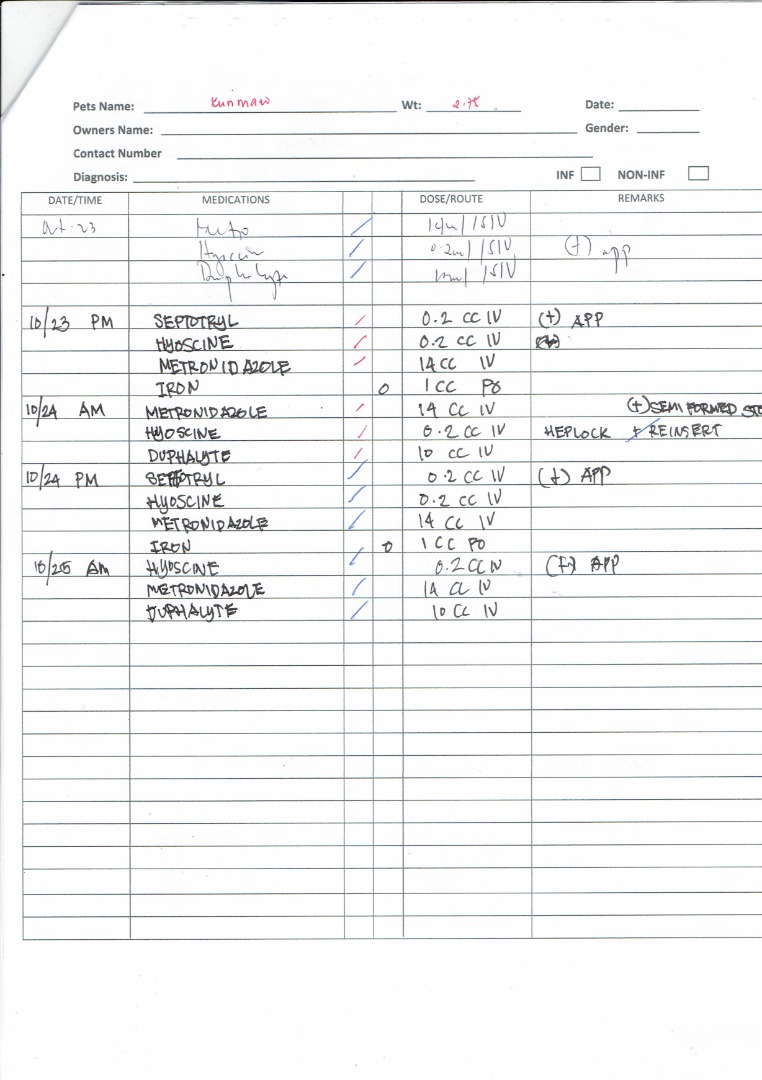 Pets Name: Kunmaw Wt: 2.75 Date:
Owners Name: Gender:
Contact Number
Diagnosis: INF NON-INF
DATE/TIME MEDICATIONS DOSE/ROUTE REMARKS
Oct-23 Metro /SIV
Hyoscin 0.2ml /SIV (+) app
/SIV
10/23 PM SEPTOTRYL / 0.2 CC IV (+) APP
HYOSCINE / 0.2 CC IV
METRONIDAZOLE / 14 CC IV
IRON 0 1 CC PO
10/24 AM METRONIDAZOLE / 14 CC IV (+) SEMI FORMED STO
HYOSCINE / 0.2 CC IV HEPLOCK REINSERT
DUPHALYTE / 10 CC IV
10/24 PM SEPTOTRYL / 0.2 CC IV (+) APP
HYOSCINE / 0.2 CC IV
METRONIDAZOLE / 14 CC IV
IRON 0 1 CC PO
10/25 AM HYOSCINE / 0.2 CC IV (+) APP
METRONIDAZOLE / 14 CC IV
DUPHALYTE / 10 CC IV